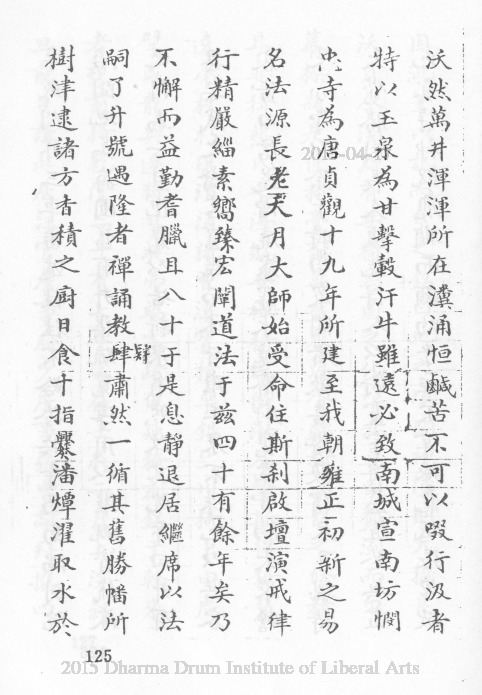 沃然萬井渾渾所在濆涌恒鹹苦不可以啜行汲者
特以玉泉為甘擊轂汗牛雖遠必致南城宣南坊憫
忠寺為唐貞觀十九年所建至我朝雍正初新之易
名法源長老天月大師始受命住斯刹啟壇演戒律
行精嚴緇素嚮臻宏闡道法于茲四十有餘年矣乃
不懈而益勤耆臘且八十于是息靜退居繼席以法
嗣了升號遇隆者禪誦教肆肅然一循其舊勝幡所
肄
樹津逮諸方香積之廚日食千指爨潘燂濯取水於
125
2015-04-
2015 Dharma Drum Institute of Liberal Arts